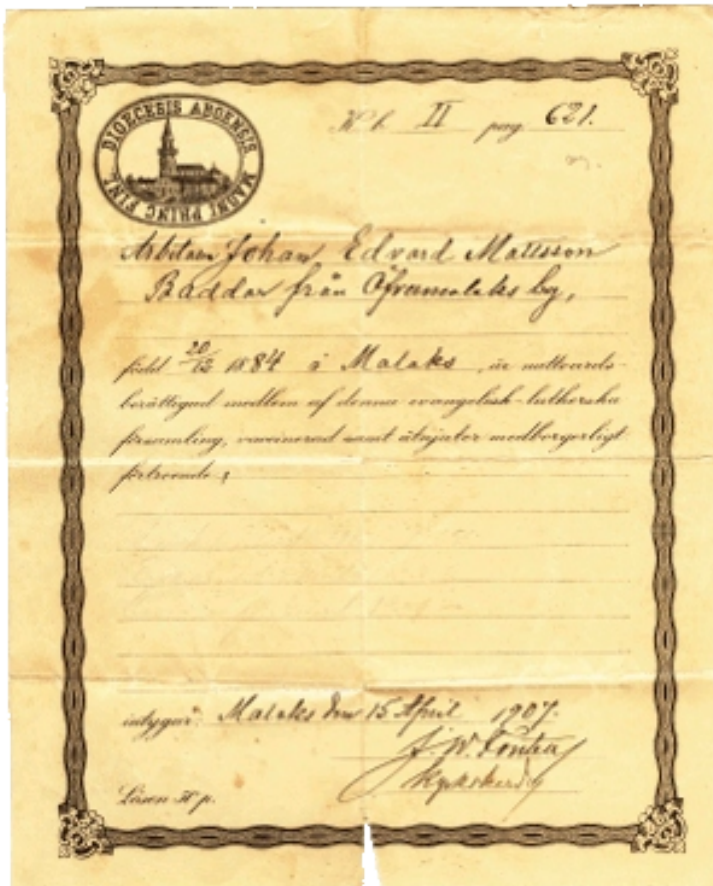 DIOECESIS ABOENSIS MAGNI PRINC FINL
K. b. II pag 621.
Arbetaren Johan Edvard Mattsson
Baddar från Öfvermalaks by,
född 20/12 1884 i Malaks, är nattvards-
berättigad medlem af denna evangelisk-lutherska
församling, vaccinerad samt åtnjuter medborgerligt
förtroende;
intygar: Malaks den 15 April 1907.
J. W.
Kyrkoherde
Lösen p.